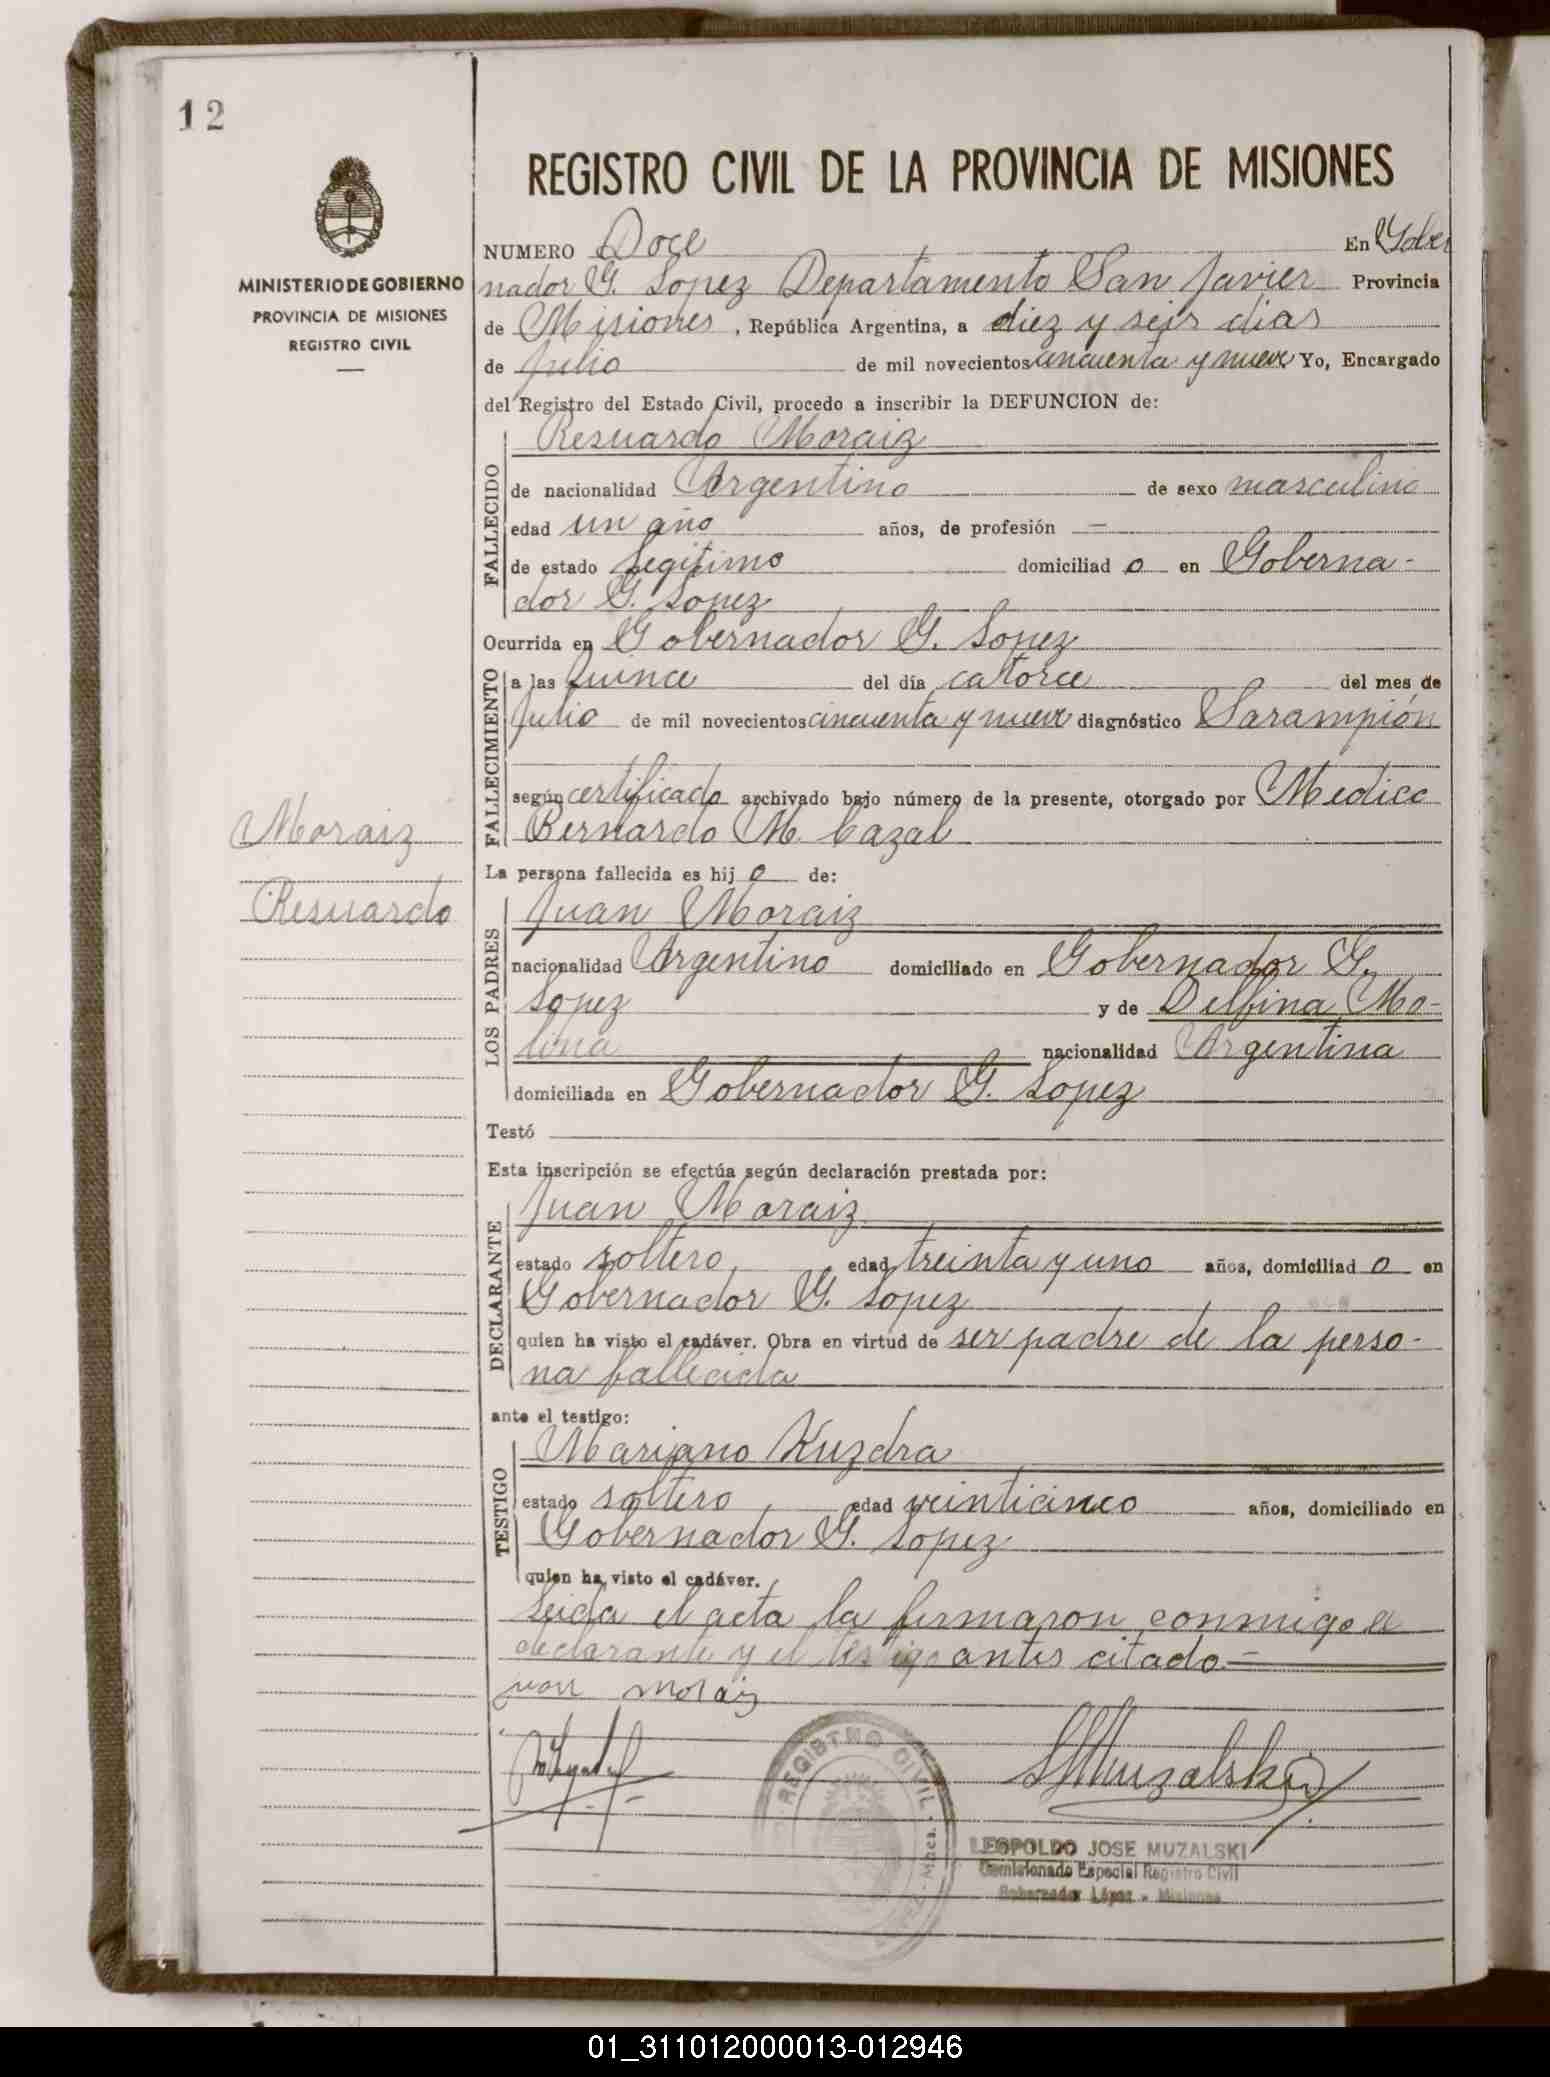 12
MINISTERIO DE GOBIERNO
PROVINCIA DE MISIONES
REGISTRO CIVIL
REGISTRO CIVIL DE LA PROVINCIA DE MISIONES
NUMERO Doce En Gober
nador G. Lopez Departamento San Javier Provincia
de Misiones, República Argentina, a diez y seis dias
de Julio de mil novecientos cincuenta y nueve Yo, Encargado
del Registro del Estado Civil, procedo a inscribir la DEFUNCION de:
FALLECIDO
Resuardo Moraiz
de nacionalidad Argentino de sexo masculino
edad un año años, de profesión —
de estado Legitimo domiciliad o en Goberna-
dor G. Lopez
Ocurrida en Gobernador G. Lopez
FALLECIMIENTO
a las quince del día catorce del mes de
Julio de mil novecientos cincuenta y nueve diagnóstico Sarampión
según certificado archivado bajo número de la presente, otorgado por Medico
Bernardo M. Cazal
Moraiz
Resuardo
La persona fallecida es hij o de:
LOS PADRES
Juan Moraiz
nacionalidad Argentino domiciliado en Gobernador G.
Lopez y de Delfina Mo-
lina nacionalidad Argentina
domiciliada en Gobernador G. Lopez
Testó
Esta inscripción se efectúa según declaración prestada por:
DECLARANTE
Juan Moraiz
estado soltero, edad treinta y uno años, domiciliad o en
Gobernador G. Lopez
quien ha visto el cadáver. Obra en virtud de ser padre de la perso-
na fallecida
ante el testigo:
TESTIGO
Mariano Kuzdra
estado soltero, edad veinticinco años, domiciliado en
Gobernador G. Lopez
quien ha visto el cadáver.
Leida el acta la firmaron conmigo el
declarante y el testigo antes citado.=
juan moraiz
LMuzalski
REGISTRO CIVIL
LEOPOLDO JOSE MUZALSKI
Comisionado Especial Registro Civil
Gobernador López - Misiones
01_311012000013-012946